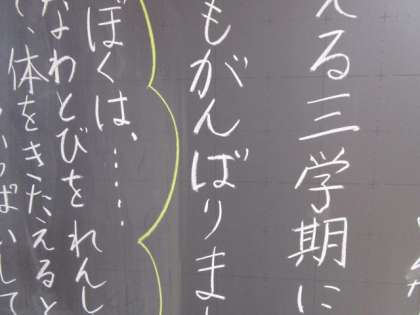 える三学期に
もがんばりま
ぼくは、……
なわとびをれんし
、体をきたえると
っぱいして